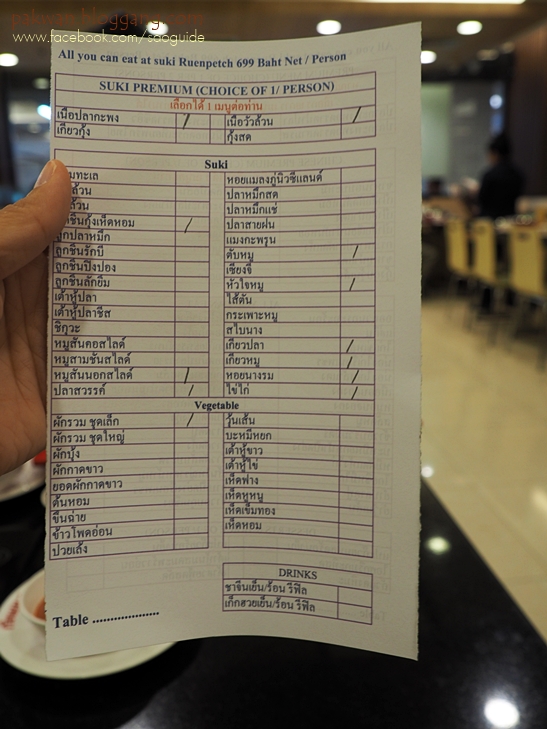 pakwan.bloggang.com
www.facebook.com/saoguide
All you can eat at suki Ruenpetch 699 Baht Net / Person
SUKI PREMIUM (CHOICE OF 1/ PERSON)
เลือกได้ 1 เมนูต่อท่าน
เนื้อปลากะพง / เนื้อวัวล้วน /
เกี๊ยวกุ้ง กุ้งสด
Suki
หอยแมลงภู่นิวซีแลนด์
ล้วน ปลาหมึกสด
ล้วน ปลาหมึกแช่
ชิ้นกุ้งเห็ดหอม / ปลาสายฝน
ลูกปลาหมึก แมงกะพรุน
ลูกชิ้นรักบี้ ตับหมู /
ลูกชิ้นปิงปอง เซี่ยงจี๊
ลูกชิ้นลักยิ้ม หัวใจหมู /
เต้าหู้ปลา ไส้ตัน
เต้าหู้ปลาชีส กระเพาะหมู
ชิกูวะ สไบนาง
หมูสันคอสไลด์ เกี๊ยวปลา /
หมูสามชั้นสไลด์ เกี๊ยวหมู /
หมูสันนอกสไลด์ / หอยนางรม /
ปลาสวรรค์ / ไข่ไก่ /
Vegetable
ผักรวม ชุดเล็ก / วุ้นเส้น
ผักรวม ชุดใหญ่ บะหมี่หยก
ผักบุ้ง เต้าหู้ขาว
ผักกาดขาว เต้าหู้ไข่
ยอดผักกาดขาว เห็ดฟาง
ต้นหอม เห็ดหูหนู
ขึ้นฉ่าย เห็ดเข็มทอง
ข้าวโพดอ่อน เห็ดหอม
ปวยเล้ง
DRINKS
ชาจีนเย็น/ร้อน รีฟิล
เก็กฮวยเย็น/ร้อน รีฟิล
Table ...................